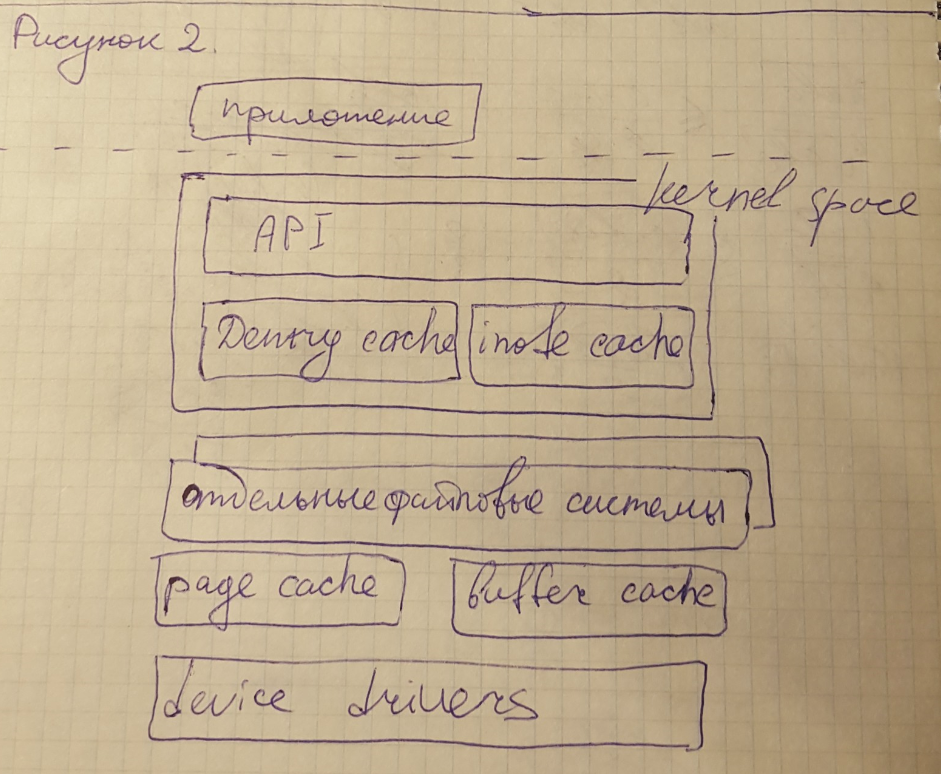 Рисунок 2.
приложение
kernel space
API
Dentry cache
inode cache
отдельные файловые системы
page cache
buffer cache
device drivers